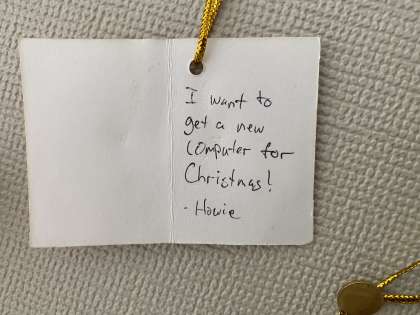 I want to
get a new
computer for
Christmas!
- Howie